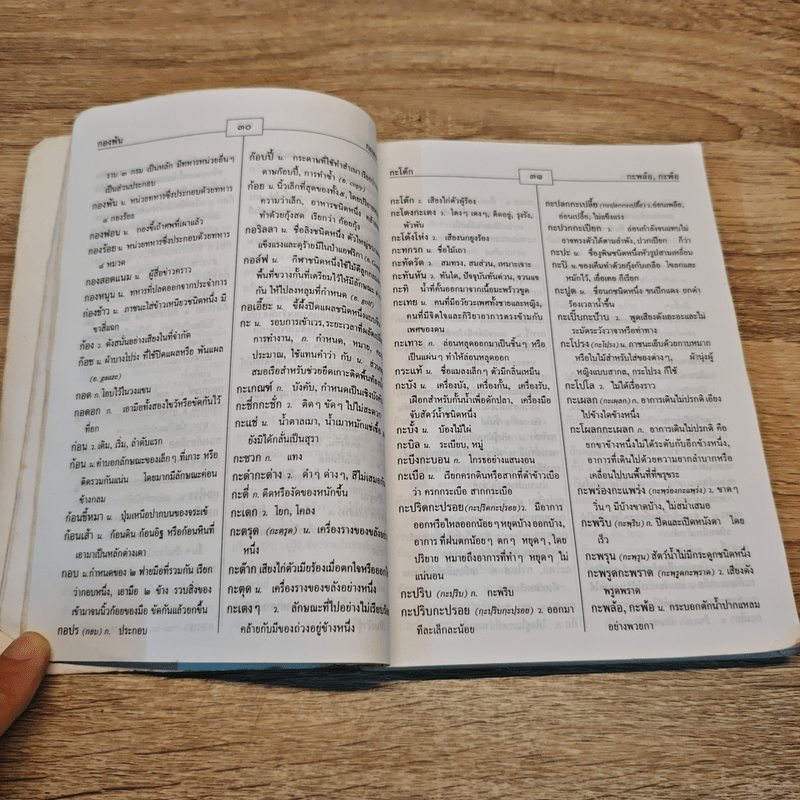 กองพัน
๓๐
ราบ ๓ กรม เป็นหลัก มีทหารหน่วยอื่นๆ
เป็นส่วนประกอบ
กองพัน น. หน่วยทหารซึ่งประกอบด้วยทหาร
๔ กองร้อย
กองฟอน น. กองขี้เถ้าศพที่เผาแล้ว
กองร้อย น. หน่วยทหารซึ่งประกอบด้วยทหาร
๔ หมวด
กองสอดแนม น. ผู้สื่อข่าวคราว
กองหนุน น. ทหารที่ปลดออกจากประจำการ
ก่องข้าว น. ภาชนะใส่ข้าวเหนียวชนิดหนึ่ง มี
ขาสี่แฉก
ก้อง ว. ดังสนั่นอย่างเสียงในที่จำกัด
ก๊อซ น. ผ้าบางโปร่ง ที่ใช้ปิดแผลหรือ พันแผล
(อ. gauze)
กอด ก. โอบไว้ในวงแขน
กอดอก ก. เอามือทั้งสองไขว้หรือขัดกันไว้
ที่อก
ก่อน ว. เดิม, เริ่ม, ลำดับแรก
ก้อน น. คำบอกลักษณะของเล็กๆ ที่เกาะ หรือ
ติดรวมกันแน่น โดยมากมีลักษณะค่อน
ข้างกลม
ก้อนขี้หมา น. ปุ่มเหนือปากบนของจระเข้
ก้อนเส้า น. ก้อนดิน ก้อนอิฐ หรือก้อนหินที่
เอามาเป็นหลักต่างเตา
กอบ น. กำหนดของ ๒ ฟายมือที่รวมกัน เรียก
ว่ากอบหนึ่ง, เอามือ ๒ ข้าง รวบสิ่งของ
เข้ามาจนนิ้วก้อยของมือ ขัดกันแล้วยกขึ้น
กอปร (กอบ) ก. ประกอบ
ก๊อบปี้ น. กระดาษที่ใช้ทำสำเนา
ตามก๊อบปี้, การทำซ้ำ (อ. copy)
ก้อย น. นิ้วเล็กที่สุดของทั้ง ๕,
ความว่าเล็ก, อาหารชนิดหนึ่ง
ทำด้วยกุ้งสด เรียกว่า ก้อยกุ้ง
กอริลลา น. ชื่อลิงชนิดหนึ่ง
แข็งแรงและดุร้ายมีในป่าแอฟริกา
กอล์ฟ น. กีฬาชนิดหนึ่งใช้ไม้ตีลูก
พื้นที่ขวางกั้นที่เตรียมไว้ให้มี
กัน ให้ไปลงหลุมที่กำหนด (อ. golf)
กอเอี๊ยะ น. ขี้ผึ้งปิดแผลชนิดหนึ่งแบบจีน
กะ น. รอบการเข้าเวร, ระยะเวลาที่ผลัด
การทำงาน, ก. กำหนด, หมาย,
ประมาณ, ใช้แทนคำว่า กับ น.
สมอเรือสำหรับช่วยยึดเกาะติดพื้นท้อง
กะเกณฑ์ ก. บังคับ, กำหนดเป็นเชิงบังคับ
กะชึ่กกะชั่ก ว. ติดๆ ขัดๆ ไปไม่สะดวก
กะแช่ น. น้ำตาลเมา, น้ำเมาหมักแช่
ยังมิได้กลั่นเป็นสุรา
กะซวก ก. แทง
กะดำกะด่าง ว. ดำๆ ด่างๆ, สีไม่เสมอกัน
กะดี่ ก. ดีดหรืองัดของหนักขึ้น
กะเดก ว. โยก, โคลง
กะตรุด (กะตฺรุด) น. เครื่องรางของขลังอย่าง
หนึ่ง
กะต๊าก เสียงไก่ตัวเมียร้องเมื่อตกใจหรือออกไข่
กะตุด น. เครื่องรางของขลังอย่างหนึ่ง
กะเตงๆ ว. ลักษณะที่ไปอย่างไม่เรียบร้อย
คล้ายกับมีของถ่วงอยู่ข้างหนึ่ง
กะโต้ก
๓๑
กะพล้อ, กะพ้อ
กะโต้ก ว. เสียงไก่ตัวผู้ร้อง
กะโตงกะเตง ว. โตงๆ เตงๆ, ติดอยู่, รุงรัง,
พัวพัน
กะโต้งโห่ง ว. เสียงนกยูงร้อง
กะทกรก น. ชื่อไม้เถา
กะทัดรัด ว. สมทรง, สมส่วน, เหมาะเจาะ
กะทันหัน ว. ทันใด, ปัจจุบันทันด่วน, จวนแจ
กะทิ น้ำที่คั้นออกจากเนื้อมะพร้าวขูด
กะเทย น. คนที่มีอวัยวะเพศทั้งชายและหญิง,
คนที่มีจิตใจและกิริยาอาการตรงข้ามกับ
เพศของตน
กะเทาะ ก. ล่อนหลุดออกมาเป็นชิ้นๆ หรือ
เป็นแผ่นๆ ทำให้ล่อนหลุดออก
กระแท้ น. ชื่อแมลงเล็กๆ ตัวมีกลิ่นเหม็น
กะบัง น. เครื่องบัง, เครื่องกั้น, เครื่องรับ,
เฝือกสำหรับกั้นน้ำเพื่อดักปลา, เครื่องมือ
จับสัตว์น้ำชนิดหนึ่ง
กะบั้ง น. บ้องไม้ไผ่
กะบิล น. ระเบียบ, หมู่
กะบึงกะบอน ก. โกรธอย่างแสนงอน
กะเบือ น. เรียกครกดินหรือสากที่ตำข้าวเบือ
ว่า ครกกระเบือ สากกระเบือ
กะปริดกะปรอย (กะปฺริดกะปฺรอย) ว. มีอาการ
ออกหรือไหลออกน้อยๆ หยุดบ้าง ออกบ้าง,
อาการ ที่ฝนตกน้อยๆ ตกๆ หยุดๆ, โดย
ปริยาย หมายถึงอาการที่ทำๆ หยุดๆ ไม่
แน่นอน
กะปริบ (กะปฺริบ) ก. กะพริบ
กะปริบกะปรอย (กะปฺริบกะปฺรอย) ว. ออกมา
ทีละเล็กละน้อย
กะปลกกะเปลี้ย (กะปฺลกกะเปฺลี้ย) ว. อ่อนเพลีย,
อ่อนเปลี้ย, ไม่แข็งแรง
กะปวกกะเปียก ว. อ่อนกำลังจนแทบไม่
อาจทรงตัวได้ตามลำพัง, ปวกเปียก ก็ว่า
กะปะ น. ชื่องูพิษชนิดหนึ่งหัวรูปสามเหลี่ยม
กะปิ น. ของเค็มทำด้วยกุ้งกับเกลือ โขลกและ
หมักไว้, เยื่อเคย ก็เรียก
กะปูด น. ชื่อนกชนิดหนึ่ง ขนปีกแดง อกดำ
ร้องเวลาน้ำขึ้น
กะเปิ๊บกะป๊าบ ว. พูดเสียงดังเอะอะและไม่
ระมัดระวังวาจาหรือท่าทาง
กะโปรง (กะโปฺรง) น. ภาชนะเย็บด้วยกาบหมาก
หรือใบไม้สำหรับใส่ของต่างๆ, ผ้านุ่งผู้
หญิงแบบสากล, กระโปรง ก็ใช้
กะโปโล ว. ไม่ได้เรื่องราว
กะเผลก (กะเผฺลก) ก. อาการเดินไม่ปรกติ เอียง
ไปข้างใดข้างหนึ่ง
กะโผลกกะเผลก ก. อาการเดินไม่ปรกติ คือ
ยกขาข้างหนึ่งไม่ได้ระดับกับอีกข้างหนึ่ง,
อาการที่เดินไปด้วยความยากลำบากหรือ
เคลื่อนไปบนพื้นที่ที่ขรุขระ
กะพร่องกะแพร่ง (กะพฺร่องกะแพฺร่ง) ว. ขาดๆ
วิ่นๆ มีบ้างขาดบ้าง, ไม่สม่ำเสมอ
กะพริบ (กะพฺริบ) ก. ปิดและเปิดหนังตา โดย
เร็ว
กะพรุน (กะพฺรุน) สัตว์น้ำไม่มีกระดูกชนิดหนึ่ง
กะพรูดกะพราด (กะพฺรูดกะพฺราด) ว. เสียงดัง
พรูดพราด
กะพล้อ, กะพ้อ น. กระบอกตักน้ำปากแหลม
อย่างพวยกา